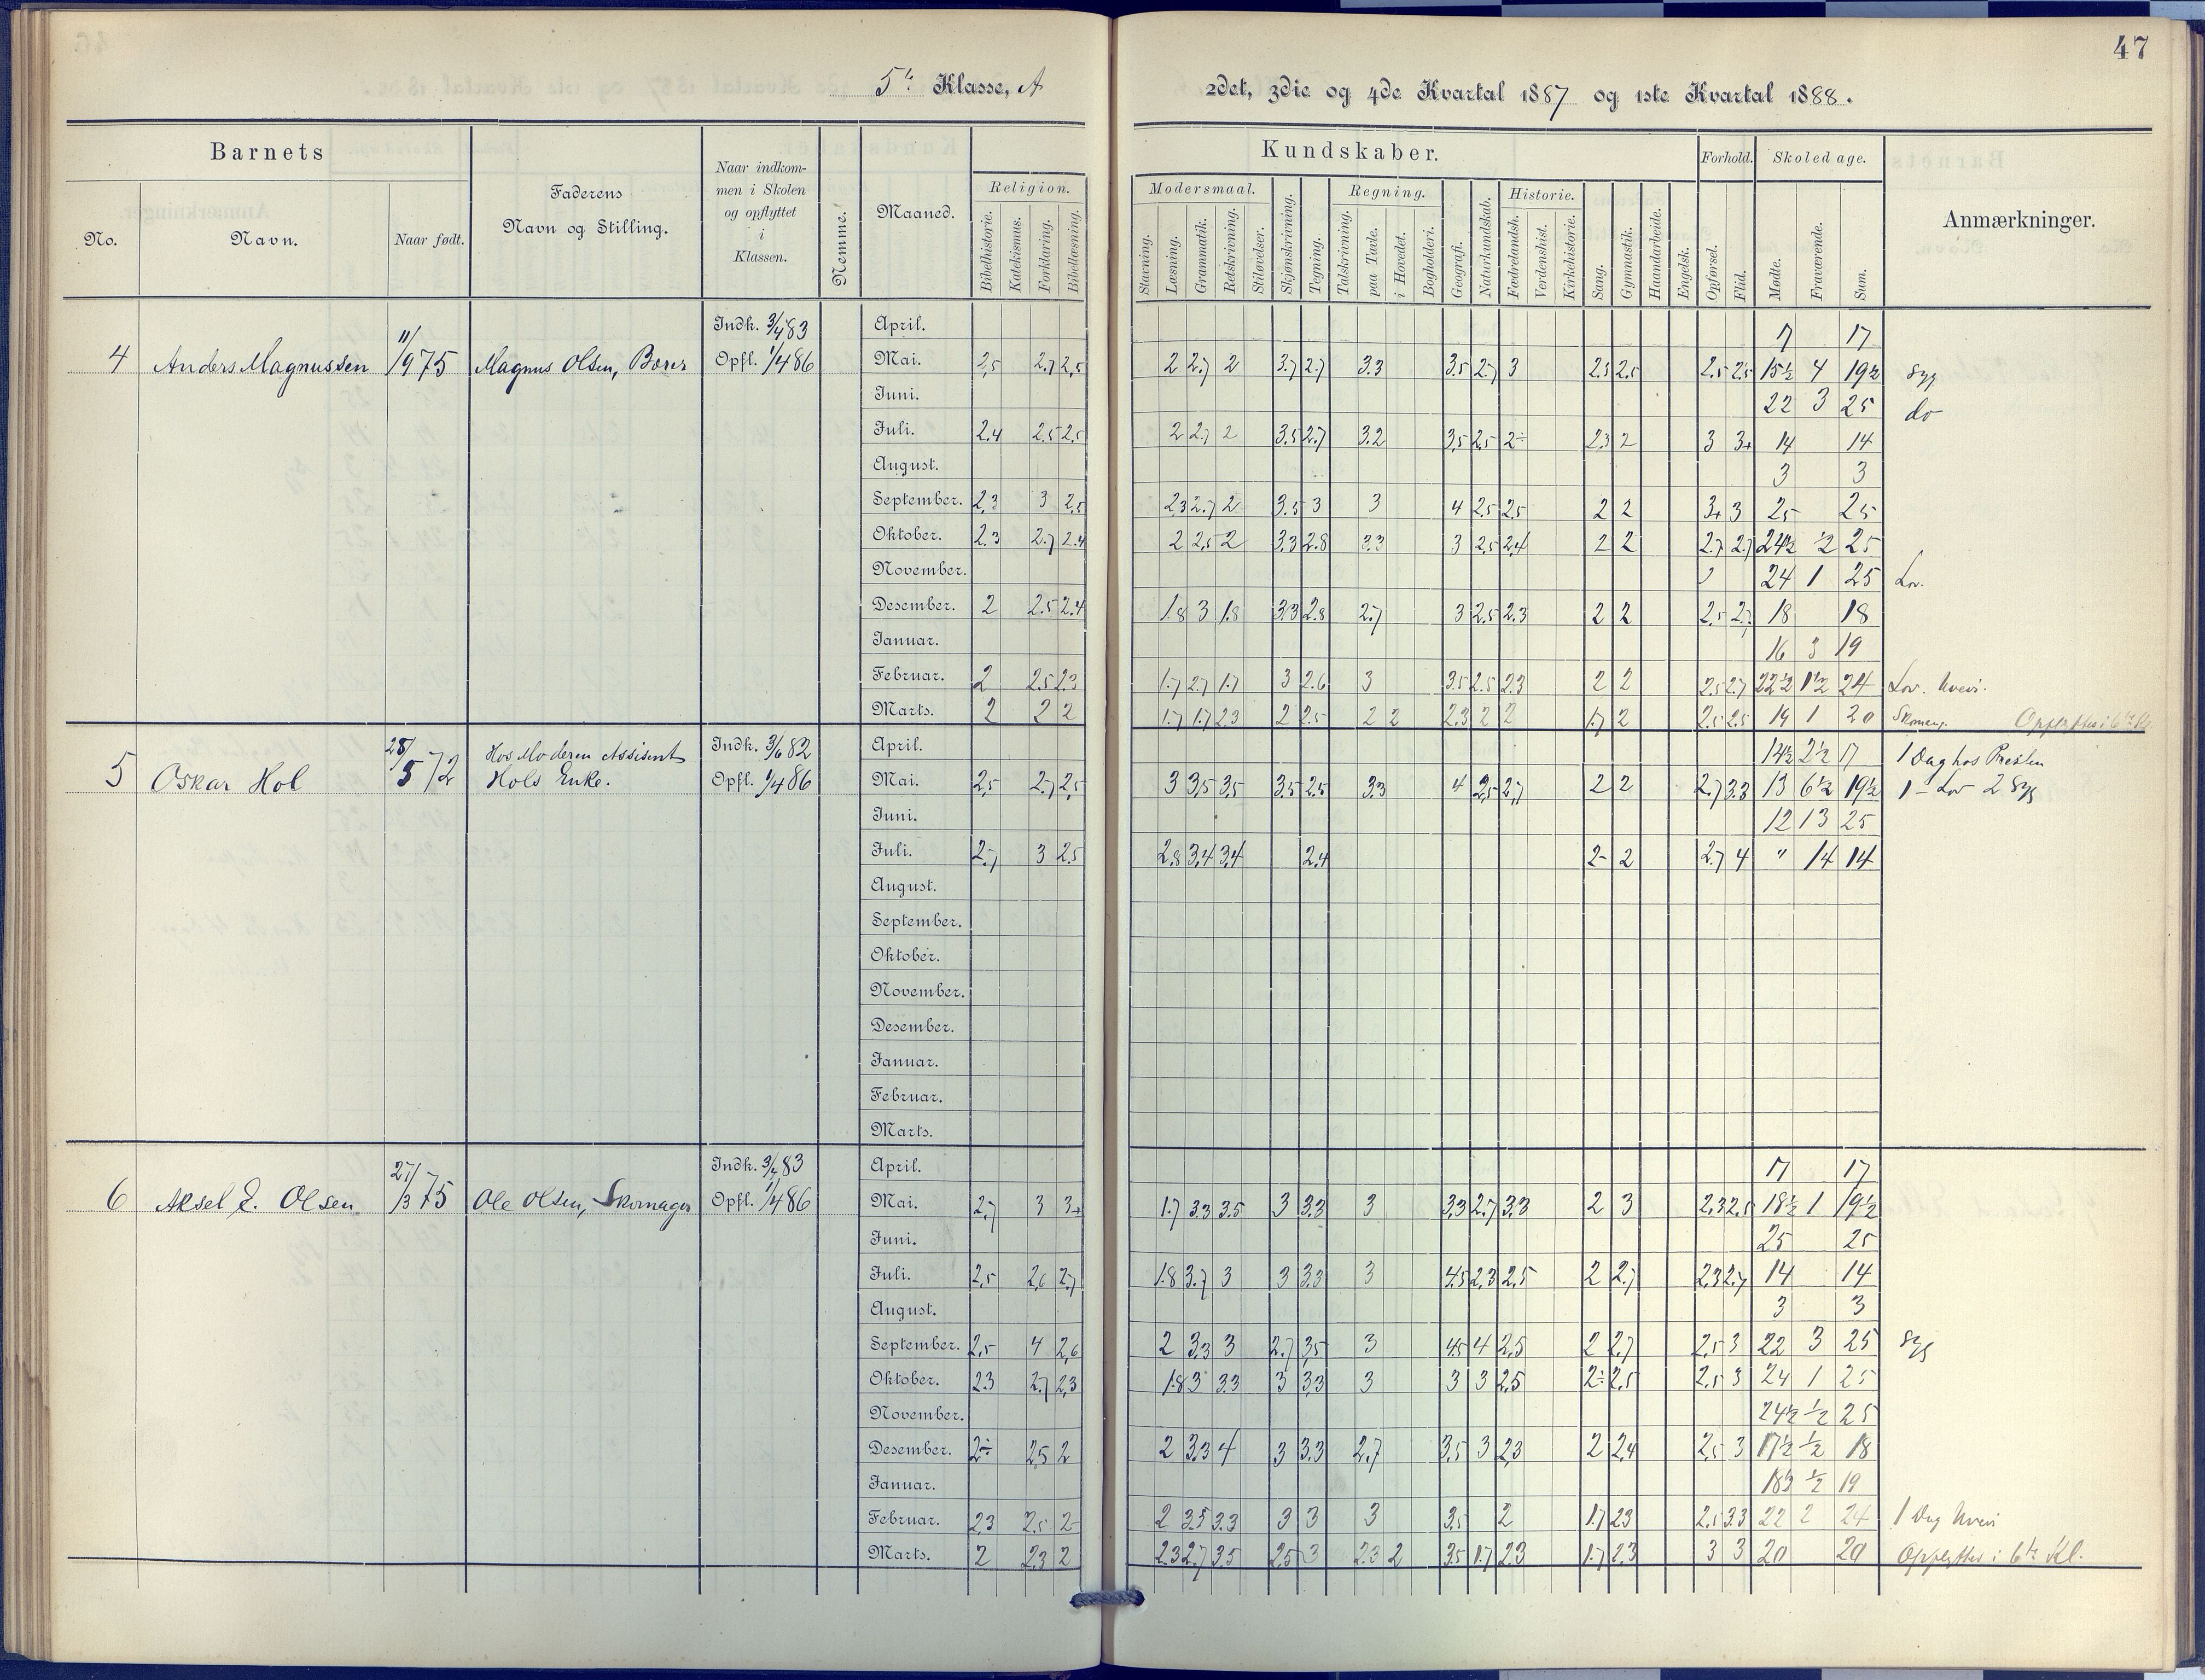 47
5te Klasse, A
2det, 3die og 4de Kvartal 1887 og 1ste Kvartal 1888.
Barnets
No.
Navn.
Naar født.
Faderens
Navn og Stilling.
Naar indkom-
men i Skolen
og opflyttet
i
Klassen.
Nemme.
Maaned.
Religion.
Bibelhistorie.
Katekismus.
Forklaring.
Bibellæsning.
Kundskaber.
Modersmaal.
Stavning.
Læsning.
Grammatik.
Retskrivning.
Stiløvelser.
Skjønskrivning.
Tegning.
Regning.
Talskrivning.
paa Tavle.
i Hovedet.
Bogholderi.
Geografi.
Naturkundskab.
Historie.
Fædrelandsh.
Verdenshist.
Kirkehistorie.
Sang.
Gymnastik.
Haandarbeide.
Engelsk.
Forhold.
Opførsel.
Flid.
Skoledage.
Mødte.
Fraværende.
Sum.
Anmærkninger.
4 Anders Magnussen 11/9 75 Magnus Olsen, Borer Indk. 3/4 83 Opfl. 1/4 86
April. 17 17
Mai. 2,5 2.7 2,5 2 2.7 2 3.7 2.7 3.3 3.5 2.7 3 2.5 2.5 2.5 2.5 15½ 4 19½ Syg
Juni. 22 3 25 do
Juli. 2.4 2.5 2.5 2 2.7 2 3.5 2.7 3.2 3,5 2,5 2÷ 2.3 2 3 3+ 14 14
August. 3 3
September. 2,3 3 2,5 2,3 2.7 2 3.5 3 3 4 2,5 2,5 2 2 3+ 3 25 25
Oktober. 2.3 2.7 2.4 2 2,5 2 3.3 2.8 3.3 3 2,5 2,4 2 2 2.7 2.7 24½ ½ 25
November. 24 1 25 Lov.
Desember. 2 2.5 2.4 1.8 3 1.8 3.3 2.8 2.7 3 2.5 2.3 2 2 2.5 2.7 18 18
Januar. 16 3 19
Februar. 2 2.5 2.3 1.7 2.7 1.7 3 2.6 3 3.5 2.5 2.3 2 2 2.5 2.7 22½ 1½ 24 Lov.
Marts. 2 2 2 1.7 1.7 2.3 2 2.5 2 2 2.3 2 2 1.7 2 2.5 2.5 19 1 20 Opflyttes i 6te Kl.
5 Oskar Hol 28/5 72 Hos Moderen Assisent
Hols Enke. Indk. 3/6 82 Opfl. 1/4 86
April. 14½ 2½ 17 1 Dag hos Presten
Mai. 2,5 2.7 2,5 3 3,5 3,5 3.5 2.5 3.3 4 2,5 2,7 2 2 2.7 3.3 13 6½ 19½ 1 - Lov 2 Syg
Juni. 12 13 25
Juli. 2.7 3 2.5 2,8 3,4 3,4 2,4 2- 2 2.7 4 " 14 14
August.
September.
Oktober.
November.
Desember.
Januar.
Februar.
Marts.
6 Aksel E. Olsen 27/3 75 Ole Olsen, Skomager Indk. 3/4 83 Opfl. 1/4 86
April. 17 17
Mai. 2,7 3 3+ 1.7 3.3 3.5 3 3.3 3 3,3 2.7 3.3 2 3 2,3 2,5 18½ 1 19½
Juni. 25 25
Juli. 2,5 2,6 2,7 1.8 3.7 3 3 3.3 3 4.5 2.3 2,5 2 2.7 2,3 2,7 14 14
August. 3 3
September. 2,5 4 2,6 2 3,3 3 2.7 3,5 3 4.5 4 2,5 2 2.7 2,5 3 22 3 25 Syg
Oktober. 2.3 2.7 2,3 1.8 3 3.3 3 3,3 3 3 3 2.5 2÷ 2.5 2.5 3 24 1 25
November. 24½ ½ 25
Desember. 2÷ 2,5 2 2 3.3 4 3 3.3 2.7 3.5 3 2,3 2 2,4 2,5 3 17½ ½ 18
Januar. 18½ ½ 19
Februar. 2,3 2.5 2- 2 3.5 3.3 3 3 3 3,5 2 1.7 2.3 2.5 3.3 22 2 24 1 Dag
Marts. 2 2,3 2 2.3 2.7 3.5 2.5 3 2.3 2 3.5 1.7 2.3 1.7 2.3 3 3 20 20 Opflyttes i 6te Kl.